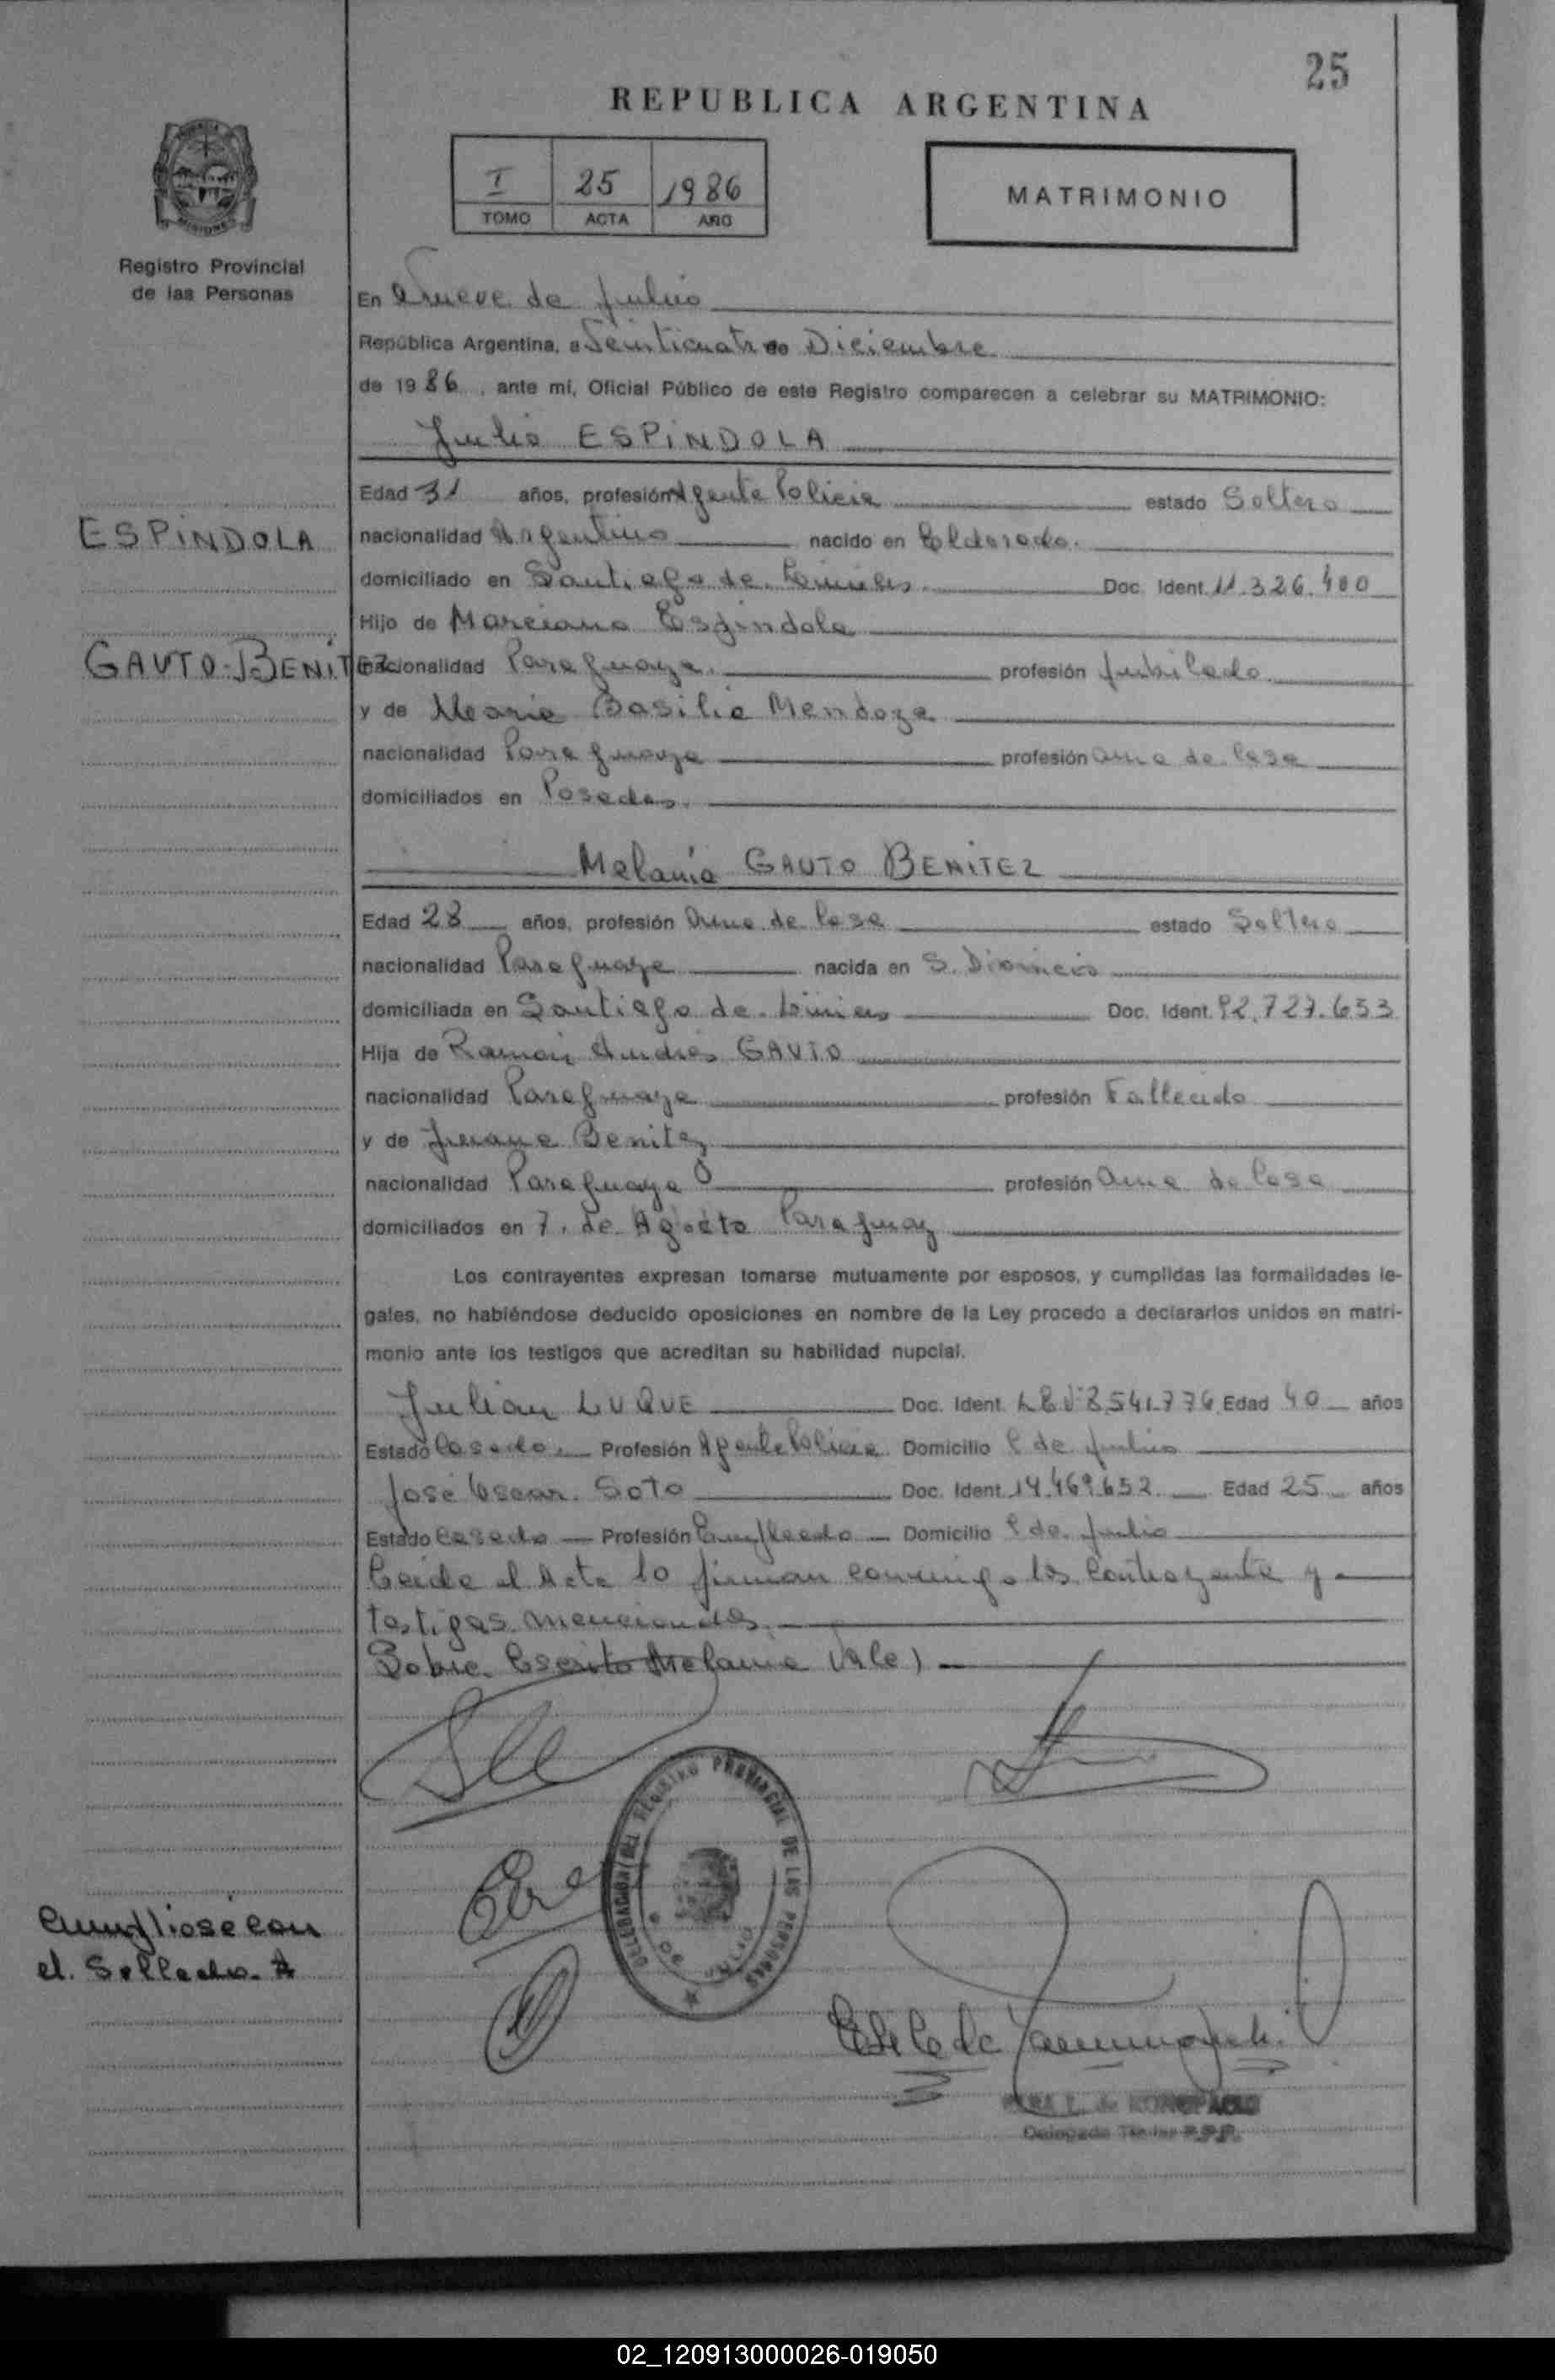 25
REPUBLICA ARGENTINA
I 25 1986
TOMO ACTA AÑO
MATRIMONIO
Registro Provincial
de las Personas
En Nueve de Julio
República Argentina, a Veinticuatro de Diciembre
de 1986, ante mí, Oficial Público de este Registro comparecen a celebrar su MATRIMONIO:
Julio ESPINDOLA
Edad 31 años, profesión Agente Policia estado Soltero
ESPINDOLA
nacionalidad Argentino nacido en Eldorado.
domiciliado en Santiago de Liniers Doc. Ident. 11.326.400
Hijo de Marciano Espindola
GAUTO-BENITEZ
nacionalidad Paraguaya. profesión Jubilado
y de Maria Basilia Mendoza
nacionalidad Paraguaya profesión Ama de Casa
domiciliados en Posadas.
Melania GAUTO BENITEZ
Edad 28 años, profesión Ama de Casa estado Soltera
nacionalidad Paraguaya nacida en S. Dionicio
domiciliada en Santiago de Liniers Doc. Ident. 92.727.653
Hija de Ramón Andres GAUTO
nacionalidad Paraguaya profesión Fallecido
y de Juana Benitez
nacionalidad Paraguaya profesión Ama de Casa
domiciliados en 7. de Agosto Paraguay
Los contrayentes expresan tomarse mutuamente por esposos, y cumplidas las formalidades le-
gales, no habiéndose deducido oposiciones en nombre de la Ley procedo a declararlos unidos en matri-
monio ante los testigos que acreditan su habilidad nupcial.
Julian LUQUE Doc. Ident. 8.541.776 Edad 40 años
Estado Casado. Profesión Agente Policia Domicilio 9 de Julio
José Oscar. Soto Doc. Ident. 14.469.652 Edad 25 años
Estado Casado Profesión Empleado Domicilio 9 de Julio
Leida el Acta lo firman conmigo los contrayente y
testigos mencionados.
Sobre Escrito Melania Vale)
DELEGACION DEL REGISTRO PROVINCIAL DE LAS PERSONAS
Cumpliose con
el. Sellado.
L. de
Delegada Titular R.P.P.
02_120913000026-019050